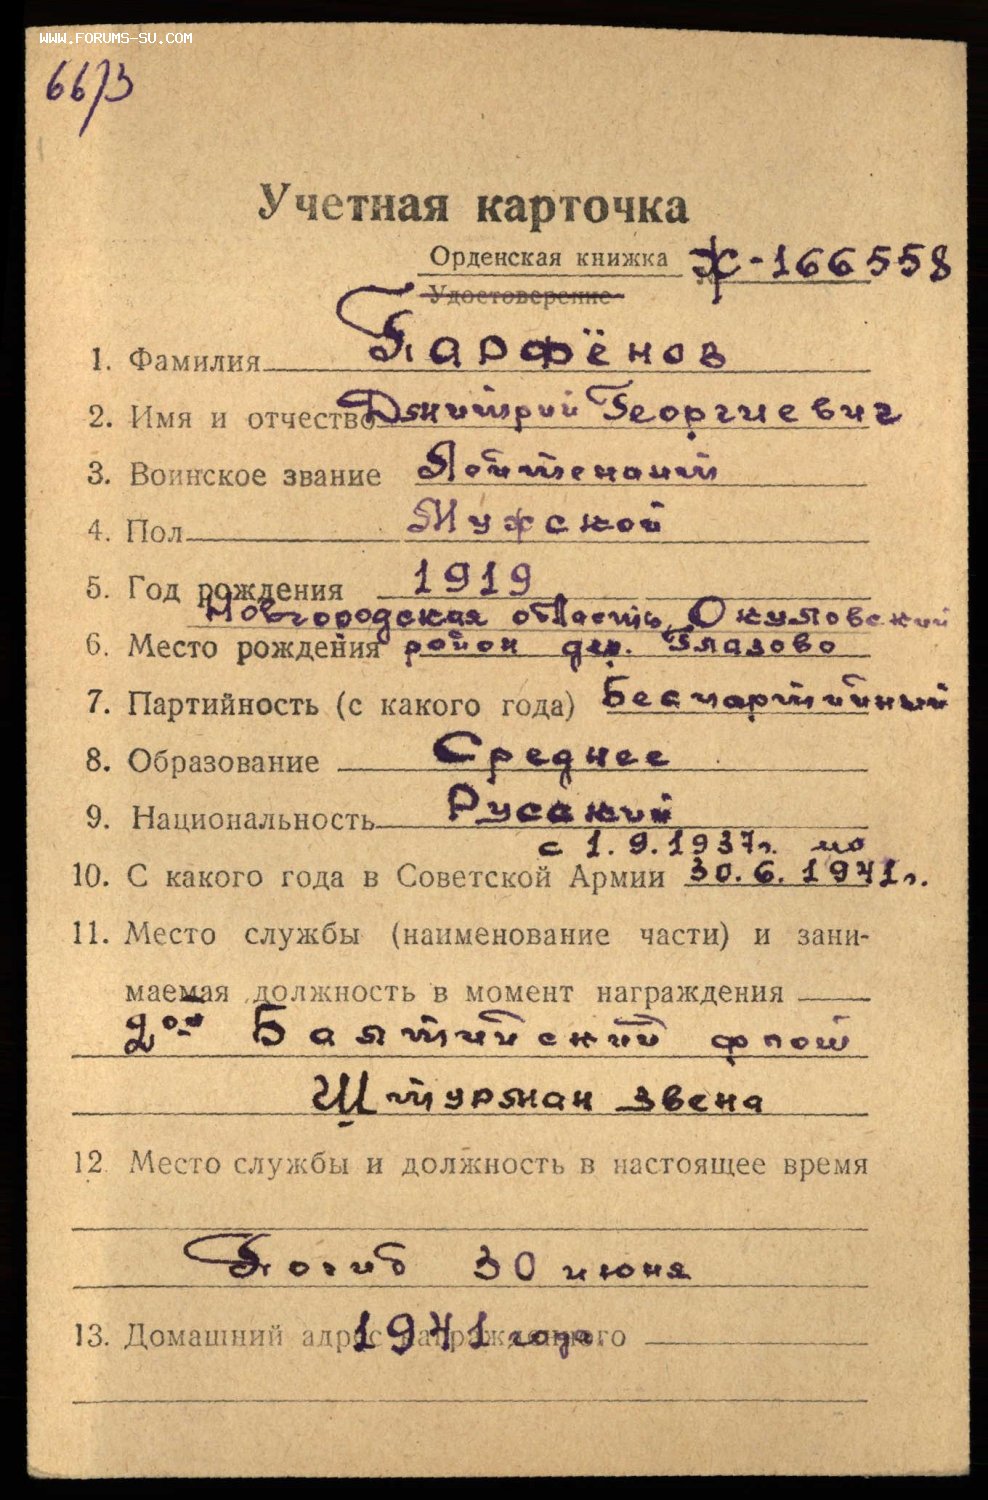 WWW.FORUMS-SU.COM
6673
Учетная карточка
Орденская книжка Ж-166558
Удостоверение
1. Фамилия Парфёнов
2. Имя и отчество Дмитрий Георгиевич
3. Воинское звание Лейтенант
4. Пол Мужской
5. Год рождения 1919
Новгородская область, Окуловский
6. Место рождения район дер. Глазово
7. Партийность (с какого года) Беспартийный
8. Образование Среднее
9. Национальность Русский
с 1.9.1937г. по
10. С какого года в Советской Армии 30.6.1941г.
11. Место службы (наименование части) и зани-
маемая должность в момент награждения
2ой Балтийский флот
Штурман звена
12. Место службы и должность в настоящее время
Погиб 30 июня
13. Домашний адрес награжденного 1941 года